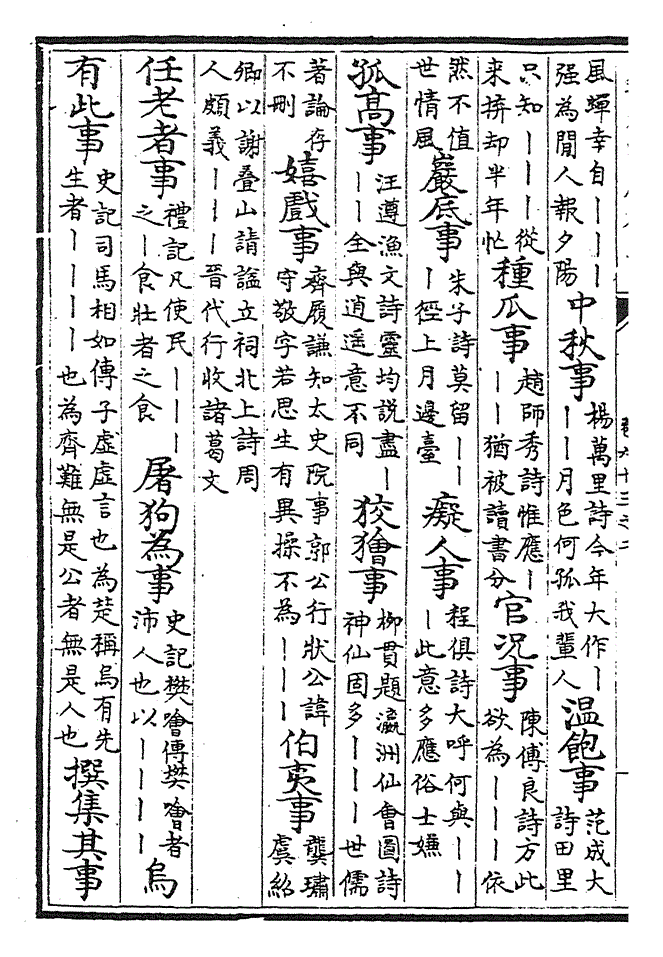 風蟬幸自｜｜｜強為閒人報夕陽 中秋事 楊萬里詩今年大作｜｜｜月色何孤我輩人 温飽事 范成大詩田里
只知｜｜｜從来拚却半年忙 種瓜事 趙師秀詩惟應｜｜｜猶被讀書分 官况事 陳傅良詩方此欲為｜｜｜依
然不值世情風 巖底事 朱子詩莫留｜｜｜徑上月邊臺 癡人事 程俱詩大呼何與｜｜｜此意多應俗士嫌
孤高事 汪遵漁文詩靈均説盡｜｜｜全與逍遥意不同 狡獪事 柳貫題瀛洲仙會圖詩神仙固多｜｜｜世儒
著論存不刪 嬉戲事 齊履謙知太史院事郭公行狀公諱守敬字若思生有異操不為｜｜｜ 伯夷事 龔璛虞紹
卿以謝叠山請諡立祠北上詩周人頗義｜｜｜晉代行收諸葛文
任老者事 禮記凡使民｜｜｜之｜食壯者之食 屠狗為事 史記樊噲傳樊噲者沛人也以｜｜｜｜ 烏
有此事 史記司馬相如傳子虚虚言也為楚稱烏有先生者｜｜｜｜也為齊難無是公者無是人也 撰集其事